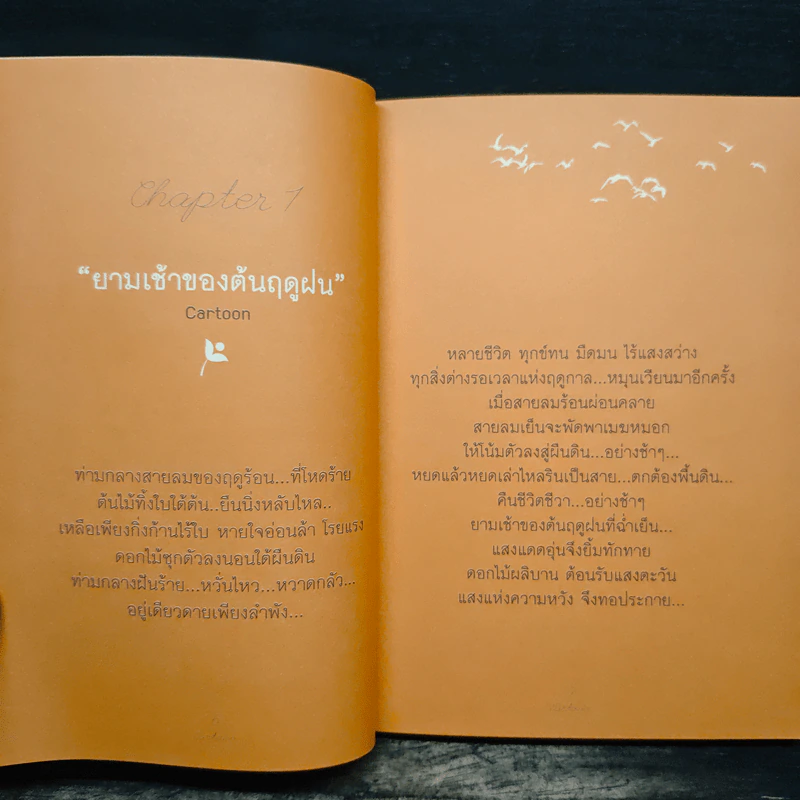 Chapter 1
“ยามเช้าของต้นฤดูฝน”
Cartoon
ท่ามกลางสายลมของฤดูร้อน...ที่โหดร้าย
ต้นไม้ทิ้งใบใต้ต้น..ยืนนิ่งหลับไหล..
เหลือเพียงกิ่งก้านไร้ใบ หายใจอ่อนล้า โรยแรง
ดอกไม้ซุกตัวลงนอนใต้ผืนดิน
ท่ามกลางฝันร้าย...หวั่นไหว...หวาดกลัว...
อยู่เดียวดายเพียงลำพัง...
หลายชีวิต ทุกข์ทน มืดมน ไร้แสงสว่าง
ทุกสิ่งต่างรอเวลาแห่งฤดูกาล...หมุนเวียนมาอีกครั้ง
เมื่อสายลมร้อนผ่อนคลาย
สายลมเย็นจะพัดพาเมฆหมอก
ให้โน้มตัวลงสู่ผืนดิน...อย่างช้าๆ...
หยดแล้วหยดเล่าไหลรินเป็นสาย...ตกต้องพื้นดิน...
คืนชีวิตชีวา...อย่างช้าๆ
ยามเช้าของต้นฤดูฝนที่ฉ่ำเย็น...
แสงแดดอุ่นจึงยิ้มทักทาย
ดอกไม้ผลิบาน ต้อนรับแสงตะวัน
แสงแห่งความหวัง จึงทอประกาย...